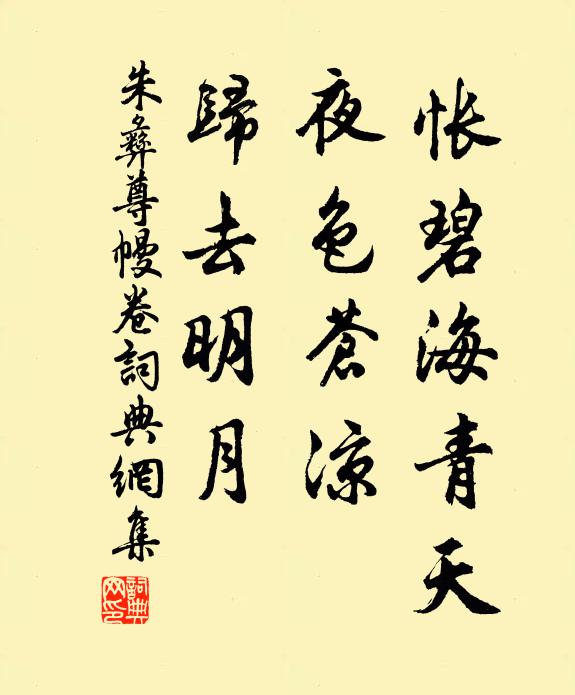 悵碧海青天
夜色蒼涼
歸去明月
朱彝尊幔卷詞典網集
詞典網印